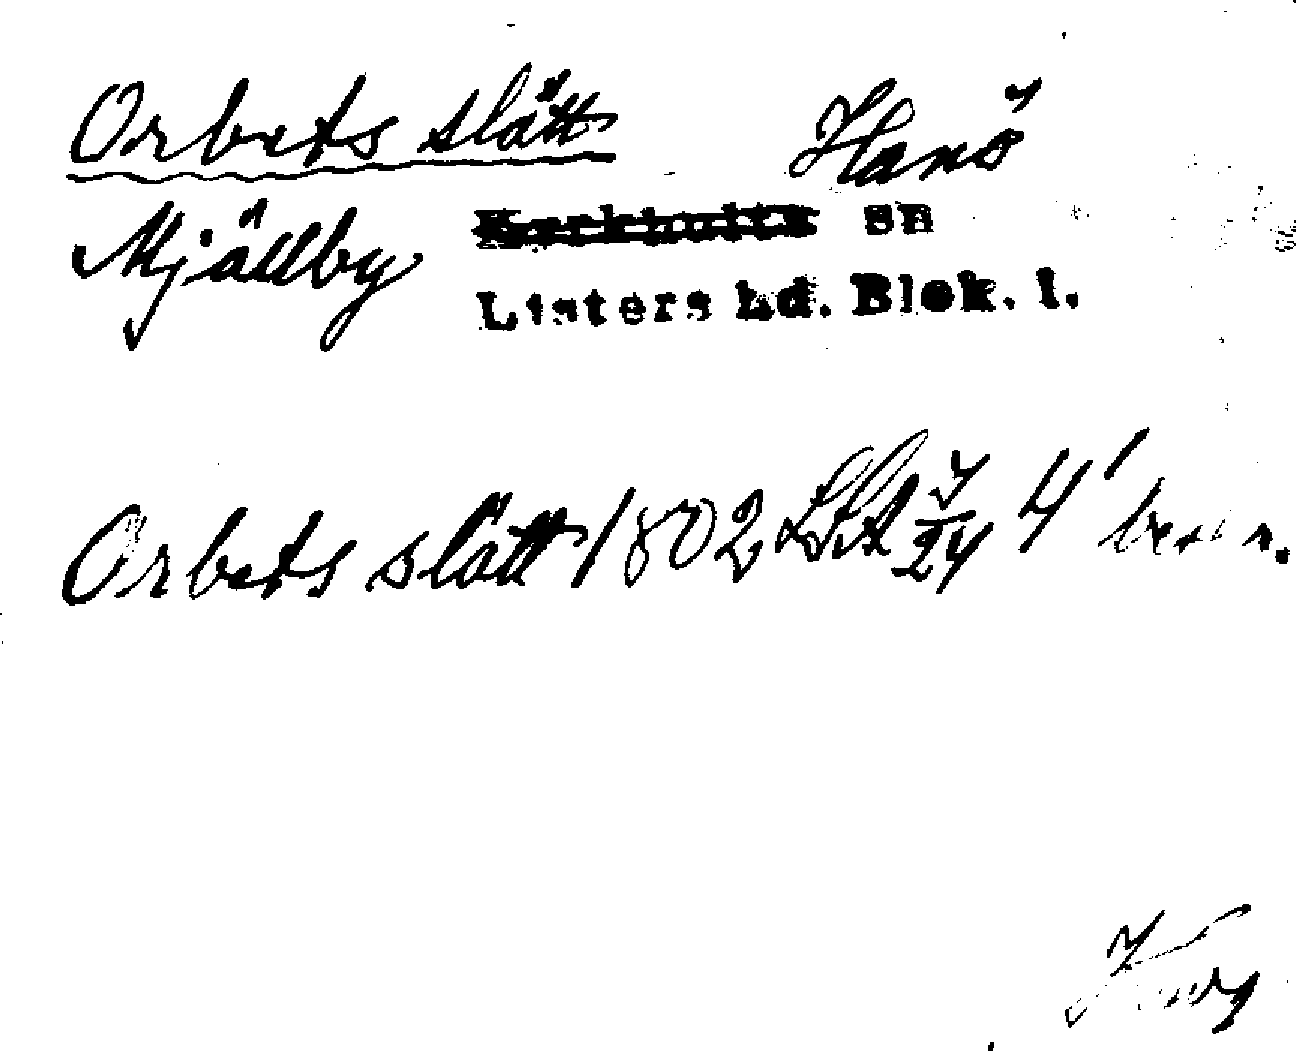 Orbets slätt Hanö
Mjällby sn
Listers hd. Blek. l.
Orbets slätt 1802 LSA 7/24 4'